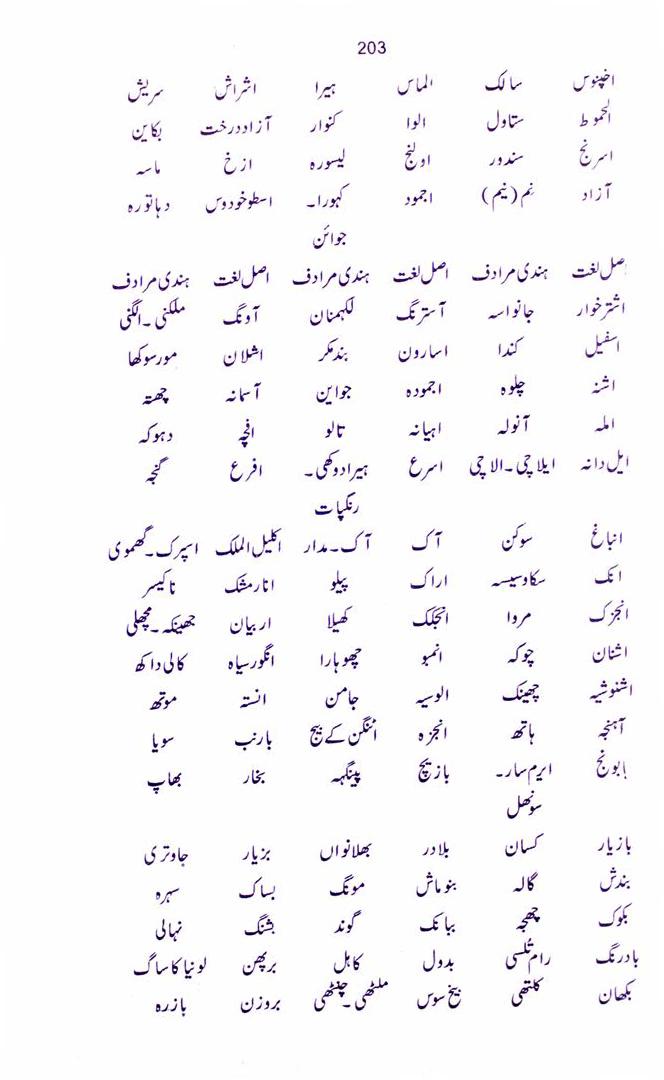 203
اخپنوس سالک الماس ہیرا اشراش سریش
الحموط ستاول الوا کنوار آزاد درخت بکاین
اسرنج سندور اولنج لیسورہ ازخ ماسہ
آزاد نم (نیم) اجمود کہورا۔ اسطوخودوس دہاتورہ
جوائن
اصل لغت ہندی مرادف اصل لغت ہندی مرادف اصل لغت ہندی مرادف
اشترخوار جانواسہ آسترنگ لکہمنان آونگ ملکنی۔الگنی
اسفیل کندا اسارون بندمکر اشلان مورسوکھا
اشنہ چلوہ اجمودہ جواین آسمانہ چھتہ
املہ آنولہ اہیانہ تالو افچہ دہوکہ
ایل دانہ ایلاچی۔الاچی اسرع ہیرادوکھی۔ افرع گنجہ
رنکپات
انباغ سوکن آک آک۔مدار اکلیل الملک اسپرک۔گھموی
انک سکاوسیسہ اراک پیلو انارمشک ناکیسر
انجزک مروا انجلک کھیلا اربیان جھینکہ۔مچھلی
اشنان چوکہ انمبو چھوہارا انگورسیاہ کالی داکھ
اشنوشیہ چھینک الوسیہ جامن انستہ موتھ
آہنچہ ہاتھ انجزہ اٹنگن کے بیج بارنب سویا
ابونج ایرم سار۔ بازیچ پینگہہ بخار بھاپ
سونھل
بازیار کسان بلادر بھلانواں بزیار جاوتری
بندش گالہ بنوماش مونگ بساک سہرہ
بکوک چھجہ ببانک گوند بشنگ نہالی
بادرنگ رام تلسی بدول کاہل برپھن لونیا کا ساگ
بکھان کلتھی بیخ سوس ملٹھی۔جٹھی بروزن بازرہ